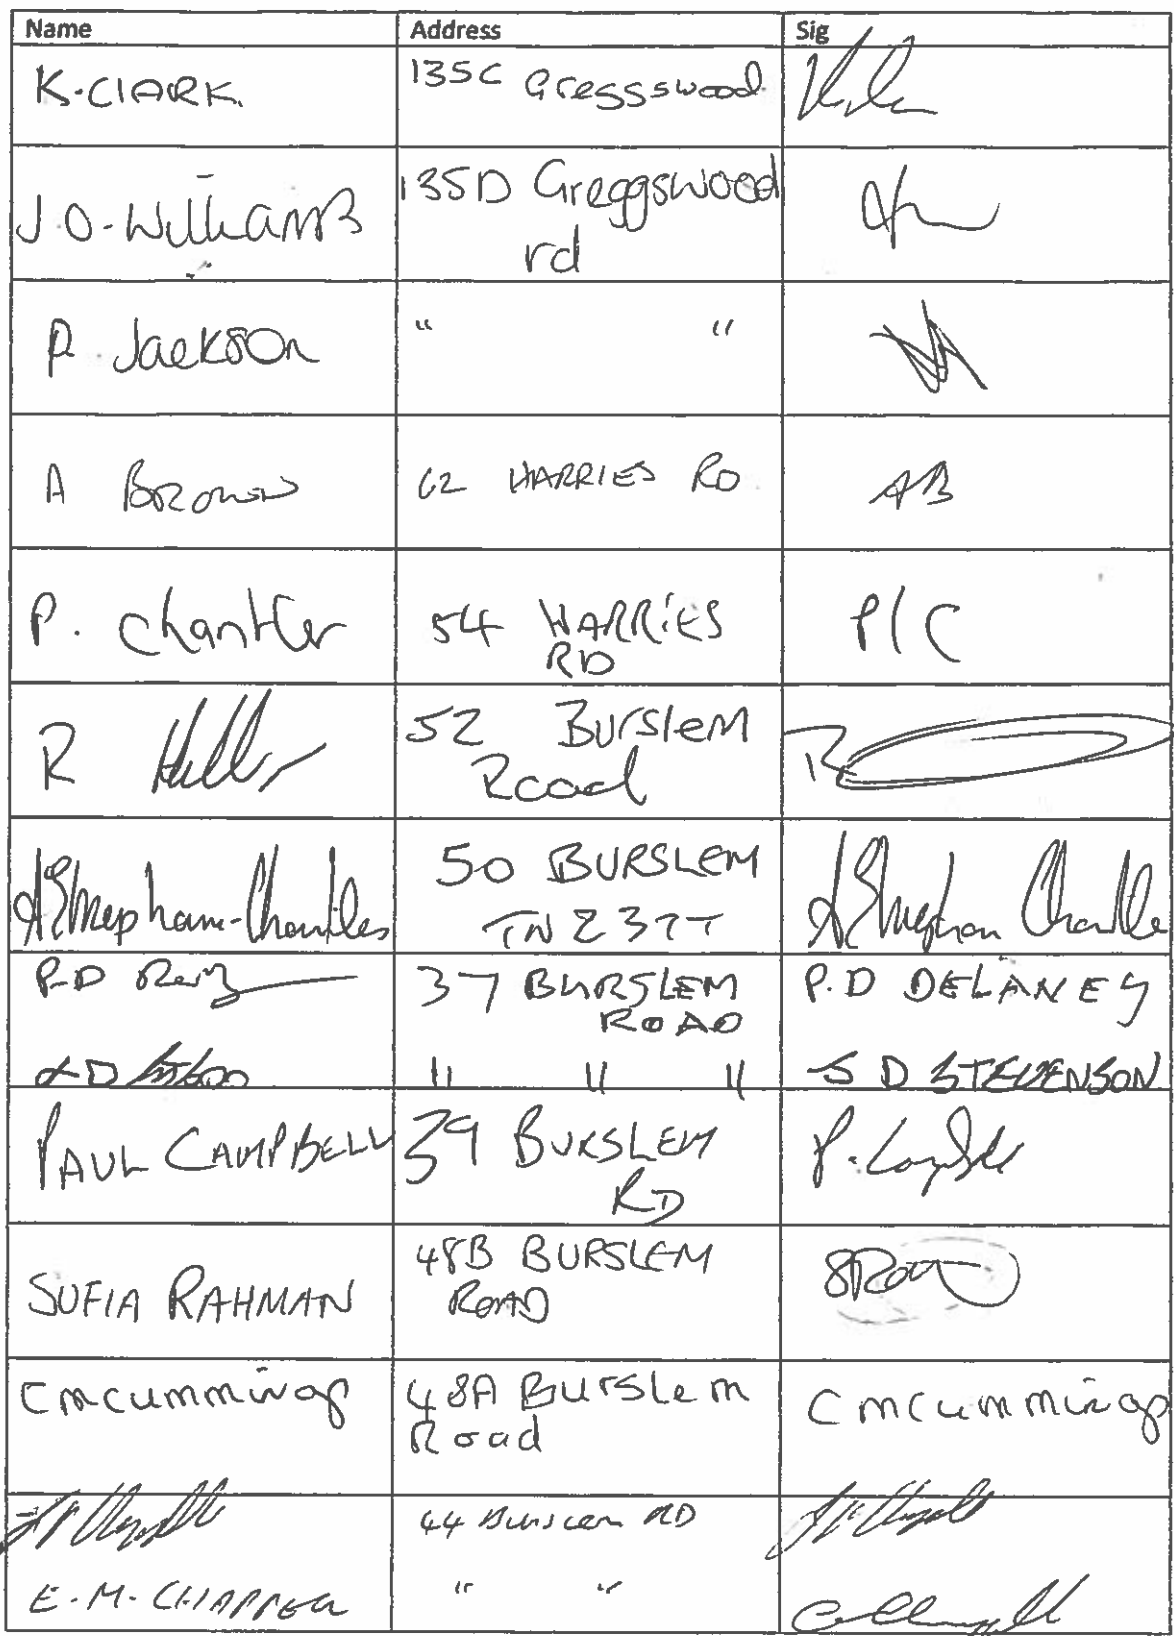 Name Address Sig
K. CLARK. 135C Greggswood.
J.O. Williams 135D Greggswood
rd
P. Jackson " "
A Brown 62 HARRIES RD AB
P. Chantler 54 HARRIES
RD P/C
R 52 Burslem
Road R
50 BURSLEM
TN2 3TT
P.D 37 BURSLEM
ROAD P.D DELANEY
" " " S D STEVENSON
PAUL CAMPBELL 39 BURSLEM
RD P. Campbell
SUFIA RAHMAN 48B BURSLEM
ROAD
C M Cummings 48A Burslem
Road C M Cummings
44 Burslem RD
E. M. CHAPPELL " "